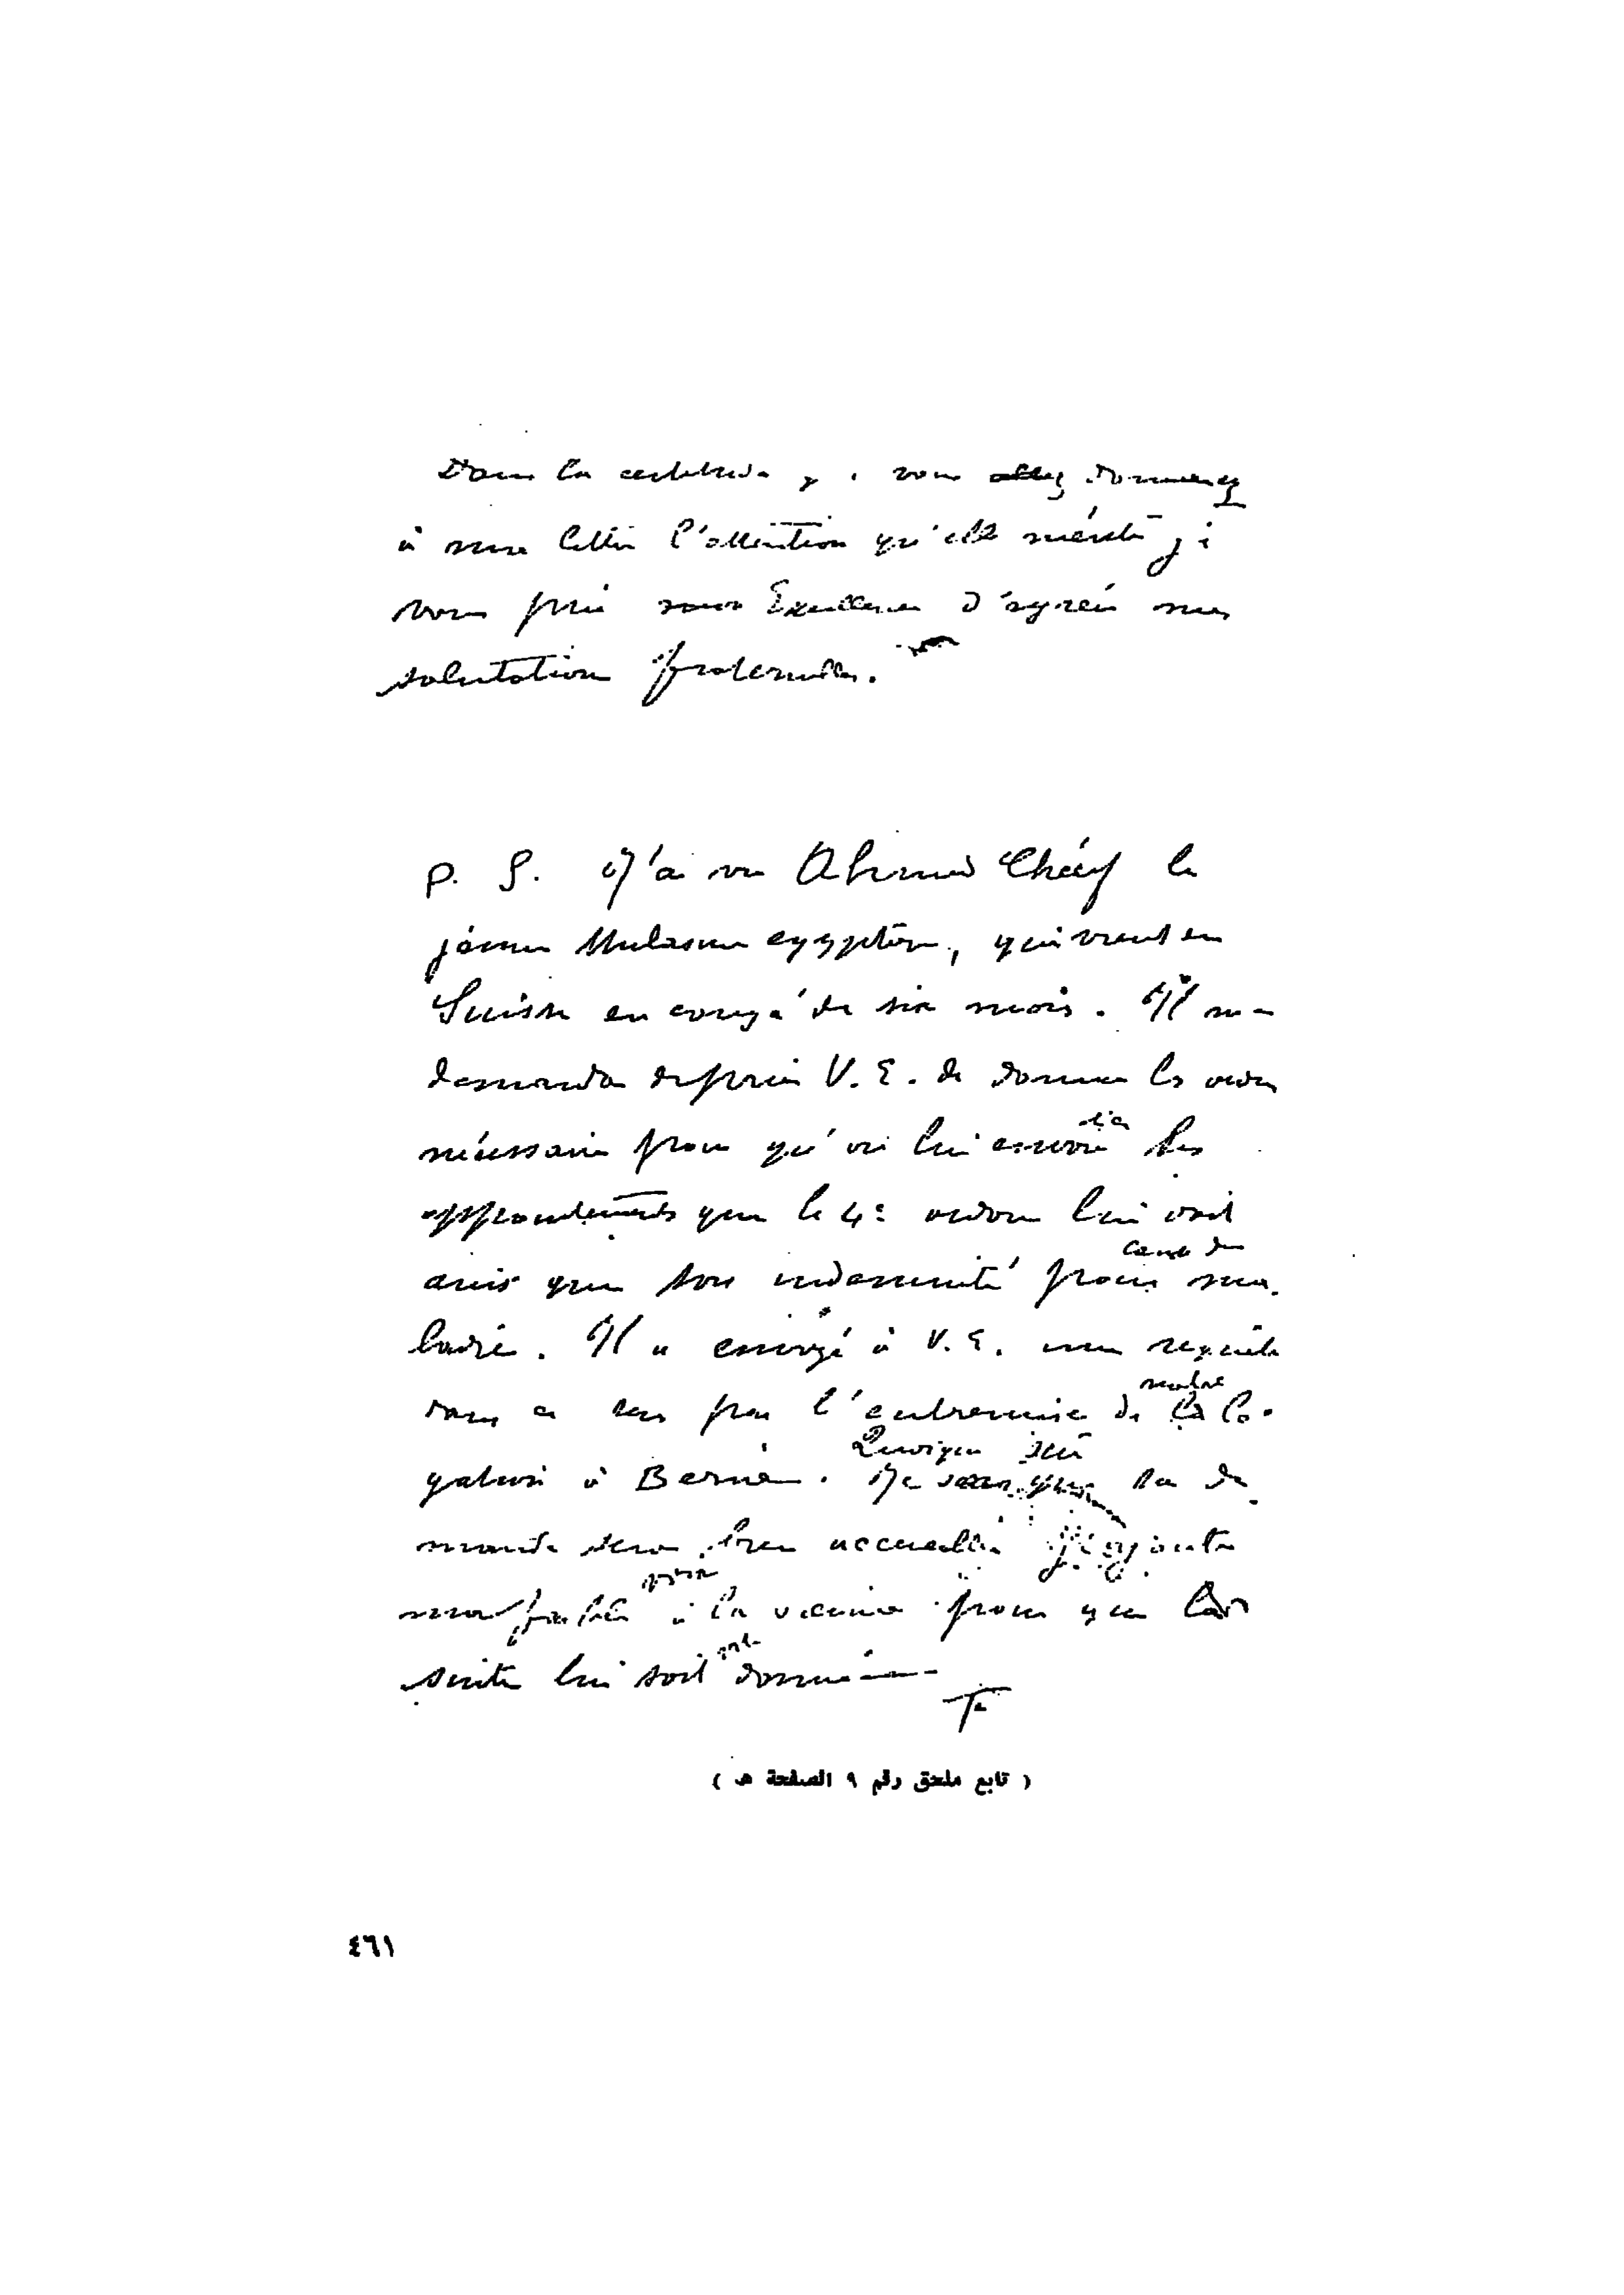 Dans la certitude que vous allez donner
à ma lettre l'attention qu'elle mérite je
vous prie votre Excellence d'agréer mes
salutation fraternelles.
P. S. J'ai vu Ahmed le
jeune egyptien, qui vient en
Suisse en congé de six mois. Il me
demanda de prier V. E. de donner les ordres
nécessaire pour qu'on lui envoie les
appointements que le 4e lui
ainsi que son indemnité pour cause de ma-
ladie. Il a envoyé à V. E. une requête
dans ce sens par l'entremise de notre la Lé-
gation à Berne. Je que sa de-
mande sera bien accueillie j'ajoute
ma faible à la sienne pour que
suite lui soit donnée
( تابع ملحق رقم ٩ الصفحة هـ )
٤٦١